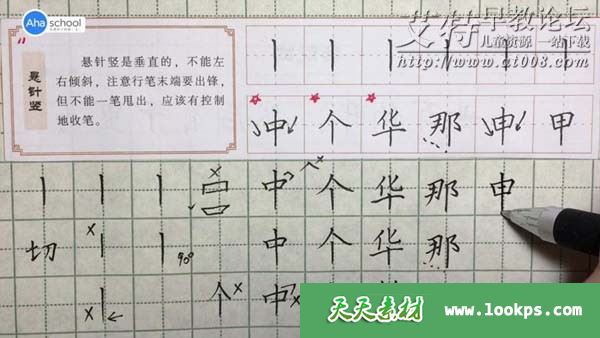 Aha school
艾特早教论坛
儿童资源 一站下载
http://www.at008.com
悬针竖
悬针竖是垂直的，不能左
右倾斜，注意行笔末端要出锋，
但不能一笔甩出，应该有控制
地收笔。
中 个 华 那 申 甲
中 个 华 那 申
切 90° 中 个 华 那
个 中
天天素材 www.lookps.com